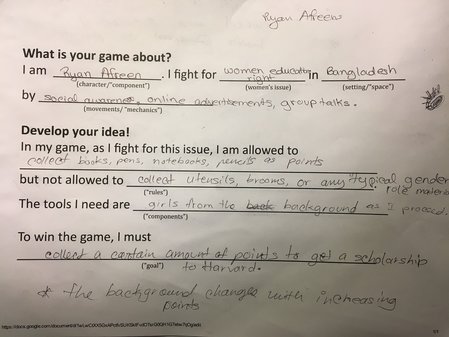 Ryan Afreen
What is your game about?
I am Ryan Afreen. I fight for women education right in Bangladesh
(character/"component") (women's issue) (setting/"space")
by social awareness, online advertisements, group talks.
(movements/ "mechanics")
Develop your idea!
In my game, as I fight for this issue, I am allowed to
collect books, pens, notebooks, pencils as points
but not allowed to collect utensils, brooms, or any typical gender role materials
("rules")
The tools I need are girls from the back background as I proceed.
("components")
To win the game, I must
collect a certain amount of points to get a scholarship
("goal") to Harvard.
* the background changes with increasing
points
1/1